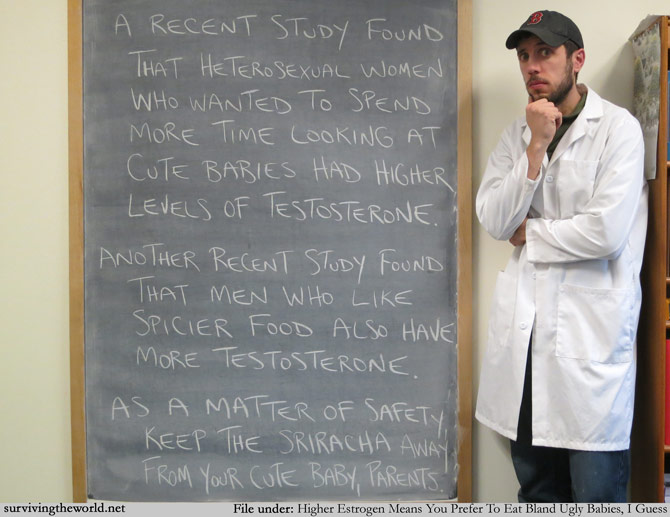 A RECENT STUDY FOUND
THAT HETEROSEXUAL WOMEN
WHO WANTED TO SPEND
MORE TIME LOOKING AT
CUTE BABIES HAD HIGHER
LEVELS OF TESTOSTERONE.
ANOTHER RECENT STUDY FOUND
THAT MEN WHO LIKE
SPICIER FOOD ALSO HAVE
MORE TESTOSTERONE.
AS A MATTER OF SAFETY,
KEEP THE SRIRACHA AWAY
FROM YOUR CUTE BABY, PARENTS.
B
survivingtheworld.net
File under: Higher Estrogen Means You Prefer To Eat Bland Ugly Babies, I Guess